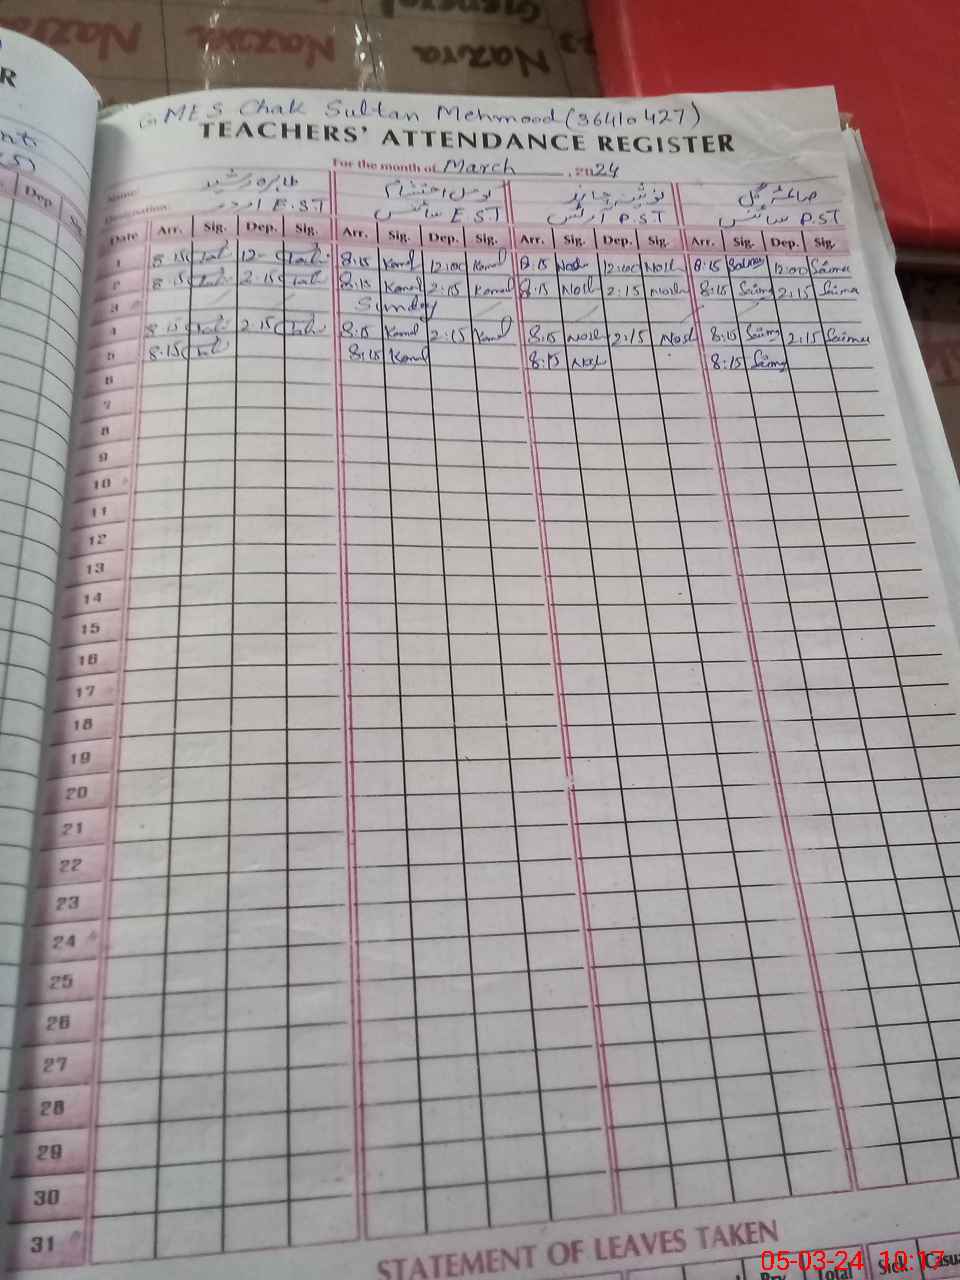 General
Nazra Nazra Nazra
R
GMES Chak Sultan Mehmood (36410427)
TEACHERS' ATTENDANCE REGISTER
For the month of March, 2024
Name: طاہرہ رشید
Designation: E.ST اردو سائنس E.ST آرٹس P.ST سائنس P.ST
Dep
Date Arr. Sig. Dep. Sig. Arr. Sig. Dep. Sig. Arr. Sig. Dep. Sig. Arr. Sig. Dep. Sig.
1 8:15 12- 8:15 Komal 12:00 Komal 8:15 Nosh 12:00 Nosh 8:15 Saima 12:00 Saima
2 8:15 2:15 8:15 Komal 2:15 Komal 8:15 Nosh 2:15 Nosh 8:15 Saima 2:15 Saima
3 Sunday
4 8:15 2:15 8:15 Komal 2:15 Komal 8:15 Nosh 2:15 Nosh 8:15 Saima 2:15 Saima
5 8:15 8:15 Komal 8:15 Nosh 8:15 Saima
6
7
8
9
10
11
12
13
14
15
16
17
18
19
20
21
22
23
24
25
26
27
28
29
30
31
STATEMENT OF LEAVES TAKEN
Total Sick Casua
05-03-24 10:17